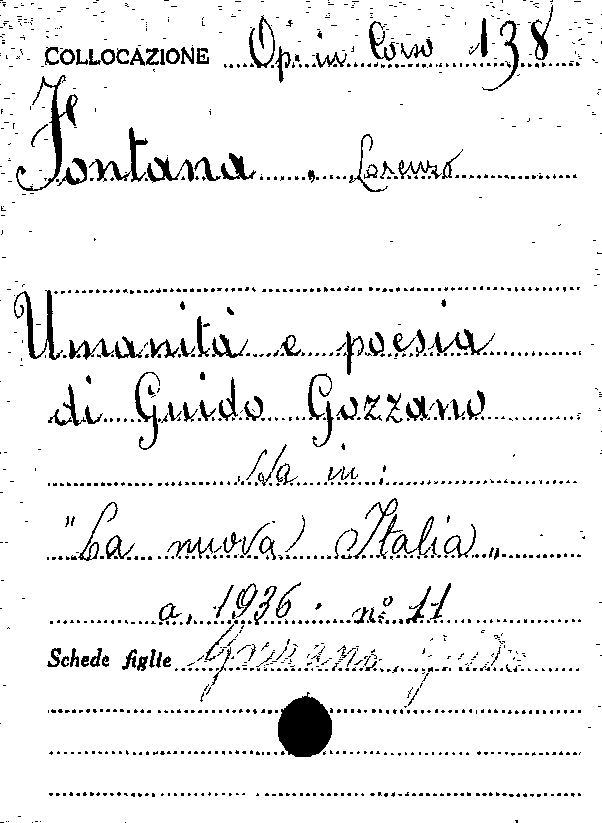 COLLOCAZIONE Op. in Corso 138
Fontana, Lorenzo
Umanità e poesia
di Guido Gozzano
Sta in:
"La nuova Italia„
a. 1936. nº 11
Schede figlie Gozzano, Guido